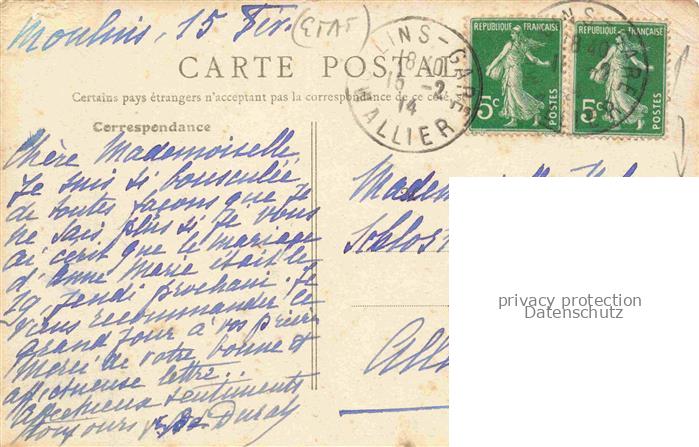 Moulins, 15 Fév.
CARTE POSTAL
Certains pays étrangers n'acceptent pas la correspondance de ce côté
Correspondance
LINS-GARE
18 40
15 -2
14
ALLIER
REPUBLIQUE FRANÇAISE
5c POSTES
REPUBLIQUE FRANÇAISE
5c POSTES
Chère Mademoiselle,
Je suis si bousculée
de toutes façons que je
ne sais plus si je vous
ai écrit que le mariage
d'Anne Marie était le
19 Jeudi prochain. Je
viens recommander ce
grand jour à vos prières
Merci de votre bonne et
affectueuse lettre..
Affectueux sentiments
toujours
Schloss
All
privacy protection
Datenschutz